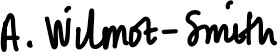 A. Wilmot-Smith